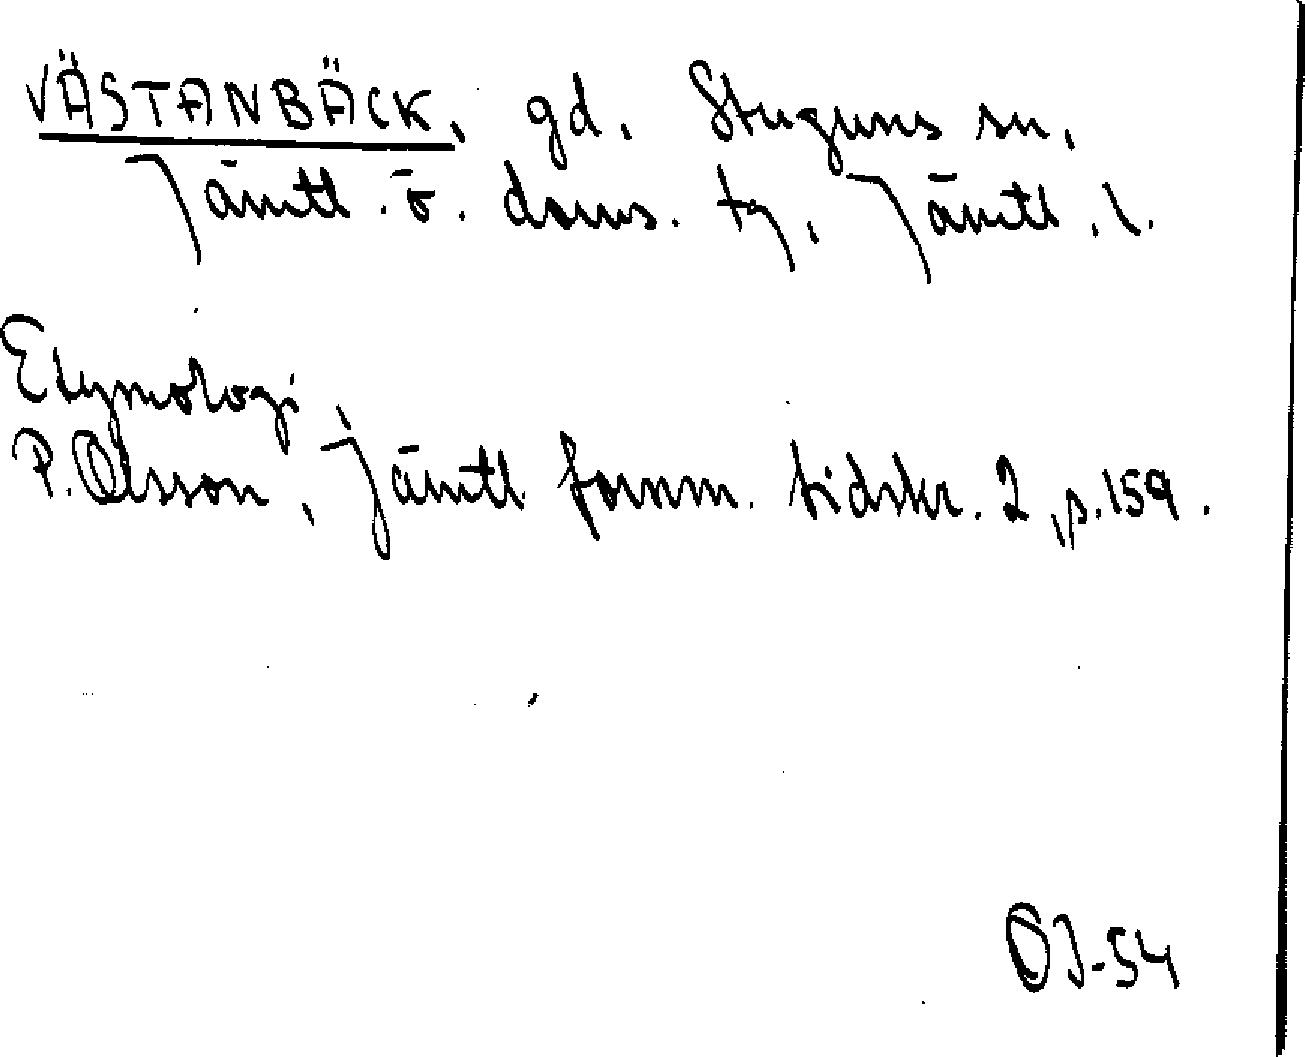 VÄSTANBÄCK, gd. Stuguns sn,
Jämtl. ö. doms. tg, Jämtl. l.
Etymologi
P. Olsson, Jämtl fornm. tidskr. 2, p. 159.
OJ-54